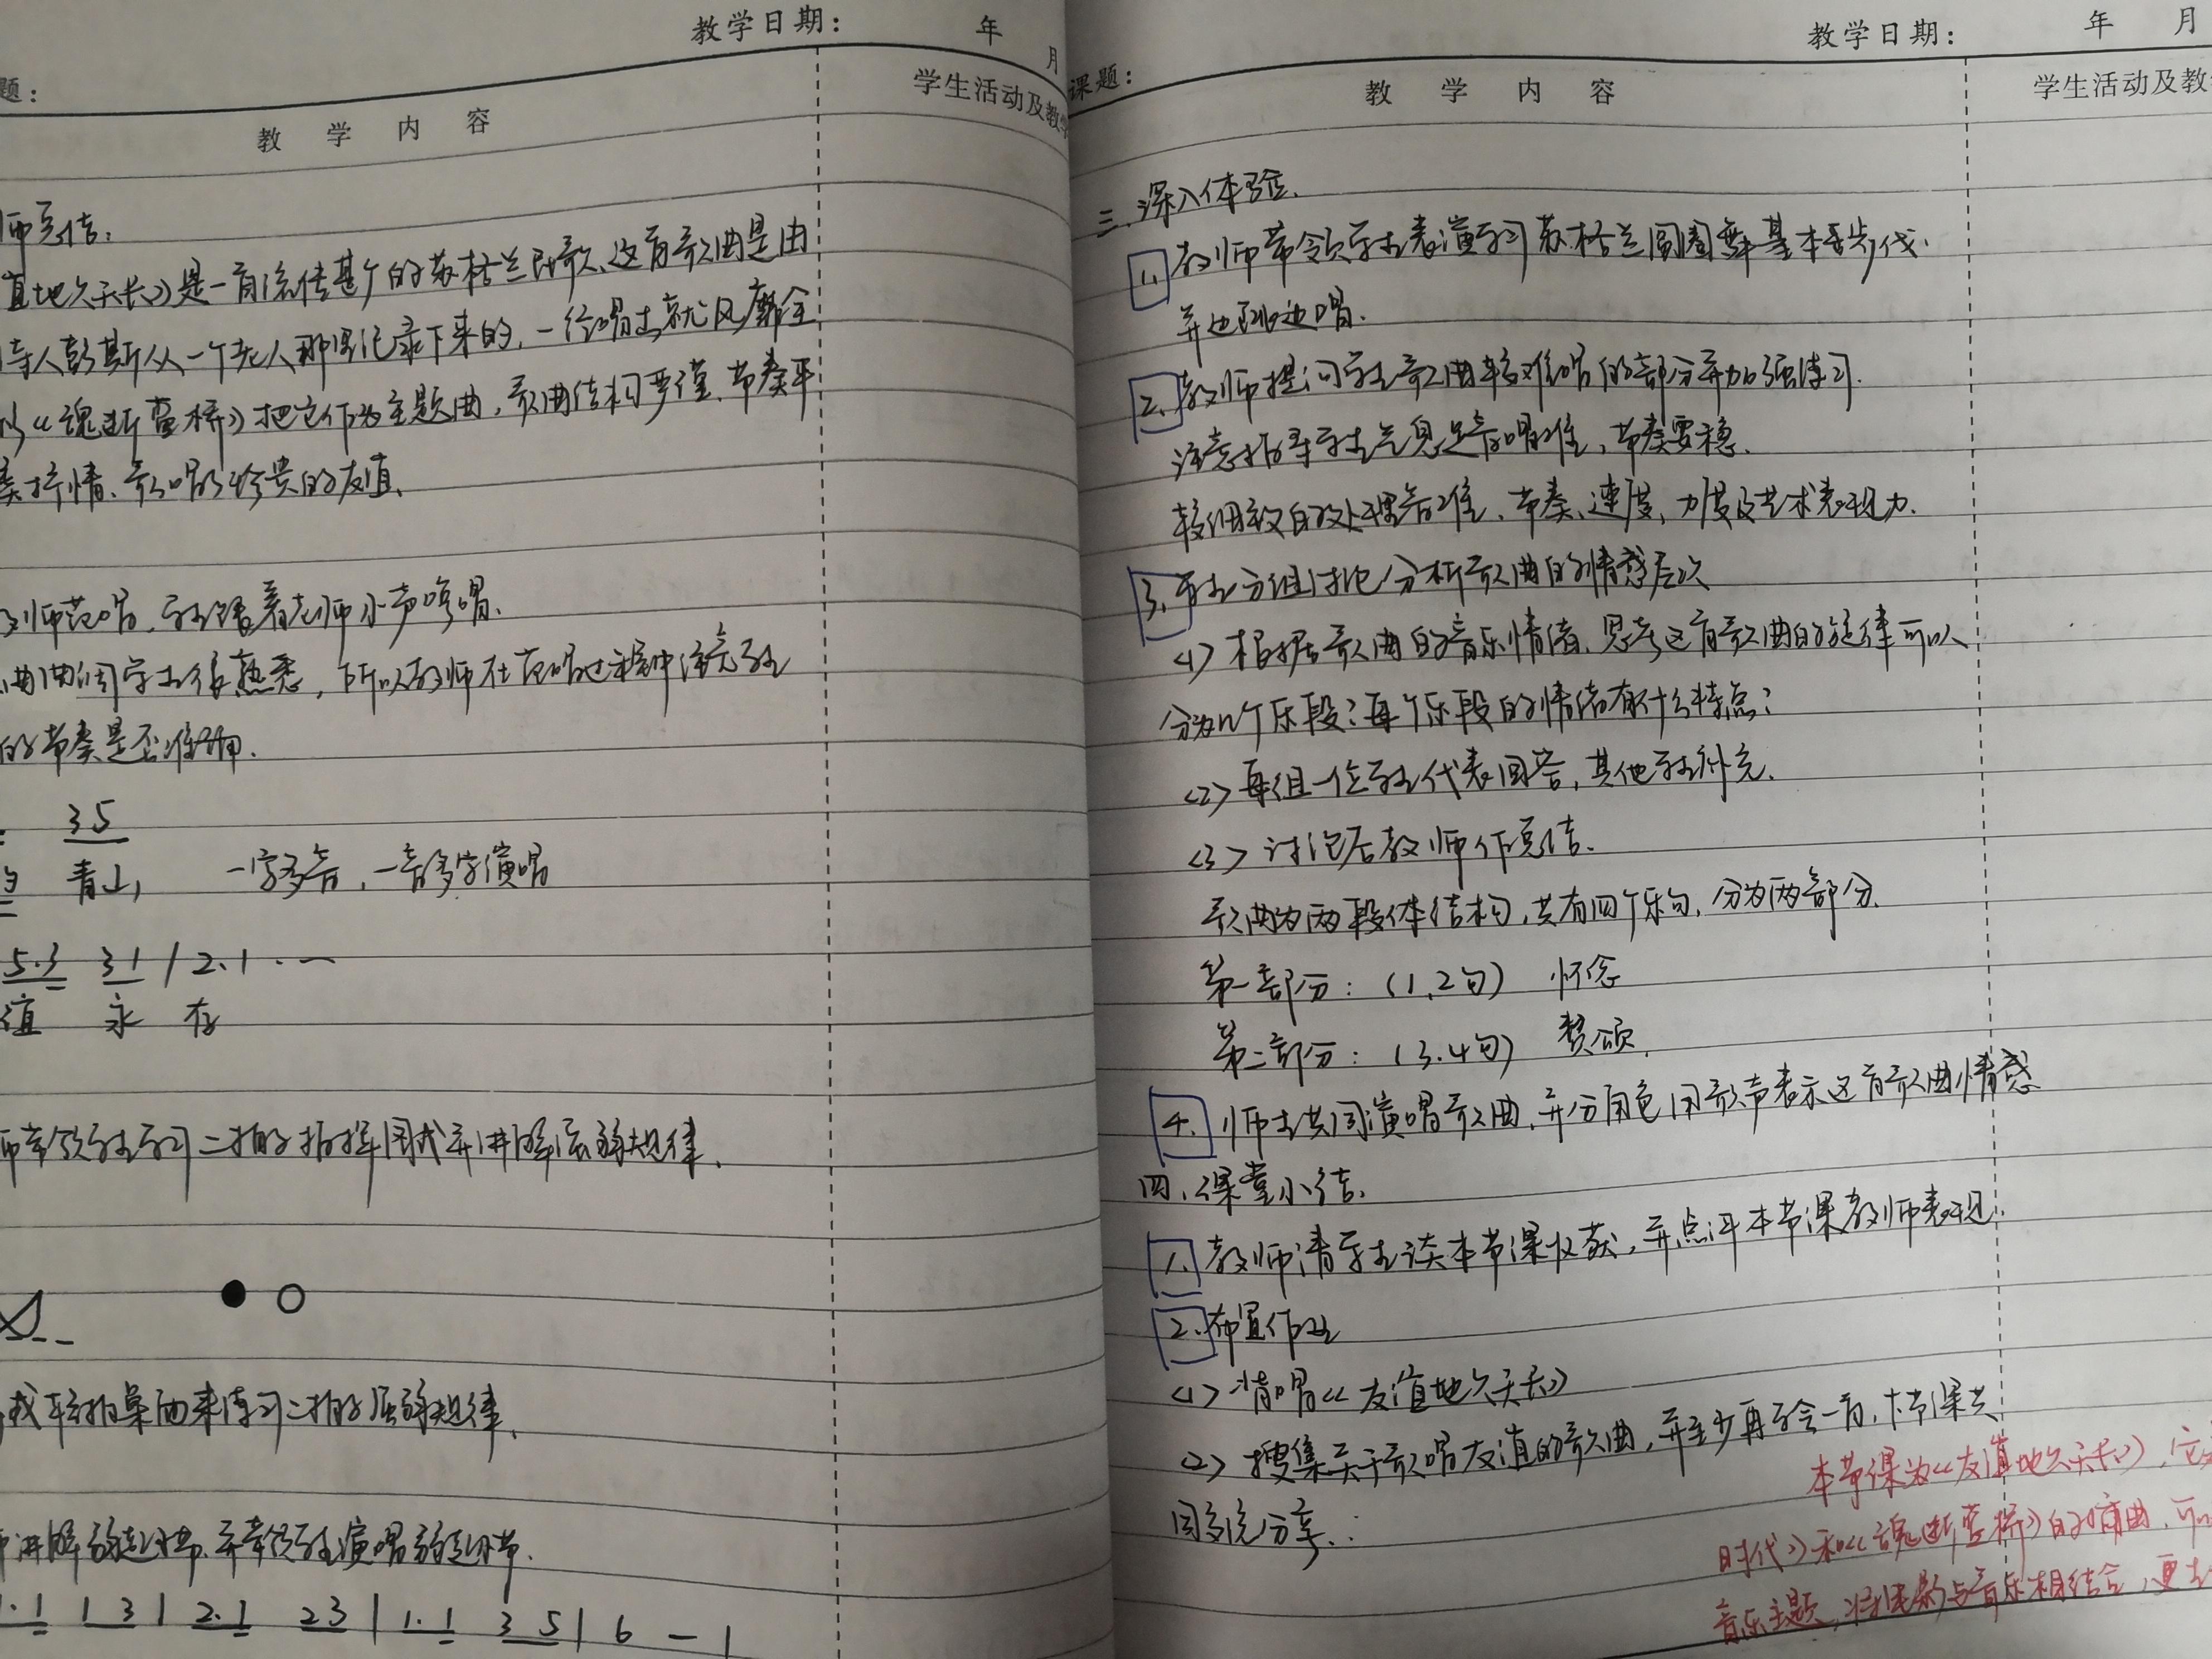 教学日期： 年 月
题：
教 学 内 容 学生活动及教学
师总结：
谊地久天长》是一首流传甚广的苏格兰民歌、这首歌曲是由
诗人彭斯从一个老人那里记录下来的，一经唱出就风靡全
《魂断蓝桥》把它作为主题曲，歌曲结构严谨、节奏平
美抒情、歌唱了珍贵的友谊、
师范唱，学生跟着老师小声哼唱、
曲调同学生很熟悉，所以教师在范唱过程中注意学生
的节奏是否准确．
： 35
青山， 一字多音，一音多字演唱
5.3 31 | 2.1 . 一
谊 永 存
师带领学生学习二拍的指挥图式并讲解强弱规律、
● ○
我车拍桌面来练习二拍的强弱规律、
讲解弱起小节、并带领学生演唱弱起小节．
1.1 1 3 | 2.1 23 | 1.1 3 5 | 6 — |
教学日期： 年 月
课题：
教 学 内 容 学生活动及教
三、深入体验．
1、教师带领学生表演学习苏格兰圆圈舞基本舞步伐．
并边跳边唱．
2、教师提问学生歌曲较难唱的部分并加强练习．
注意指导学生气息足音唱准，节奏要稳．
较细致的处理音准、节奏、速度、力度及艺术表现力．
3、学生分组讨论分析歌曲的情感层次
<1> 根据歌曲的音乐情绪，思考这首歌曲的旋律可以
分为几个乐段？每个乐段的情绪有什么特点？
<2> 每组一位学生代表回答，其他学生补充．
<3> 讨论后教师作总结．
歌曲为两段体结构，共有四个乐句，分为两部分．
第一部分：（1、2句） 怀念
第二部分：（3、4句） 赞颂．
4、师生共同演唱歌曲，并分角色用歌声表示这首歌曲情感
四、课堂小结．
1、教师请学生谈本节课收获，并点评本节课教师表现．
2、布置作业
<1> 背唱《友谊地久天长》
<2> 搜集关于歌唱友谊的歌曲，并至少再学会一首，下节课共
同多流分享．
本节课为《友谊地久天长》，它
时代》和《魂断蓝桥》的插曲，可以
音乐主题，将电影与音乐相结合，更